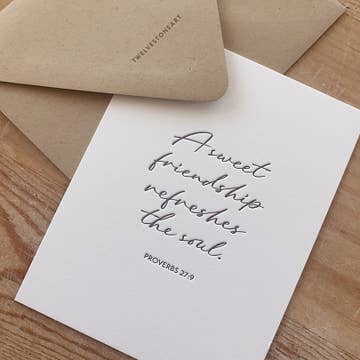 TWELVESTONESART
A sweet
friendship
refreshes
the soul.
PROVERBS 27:9